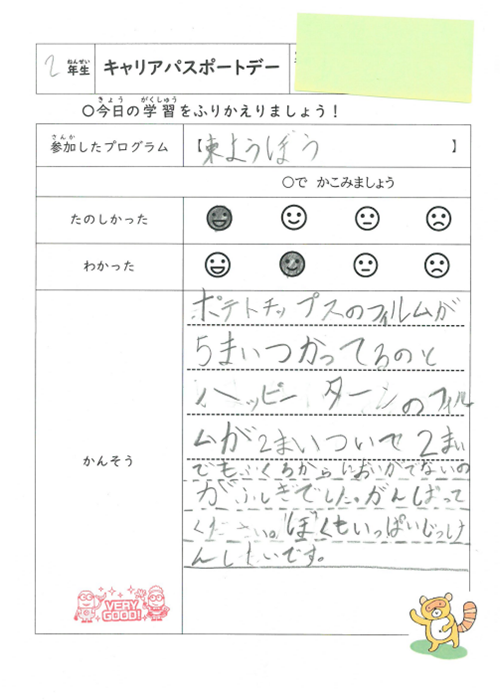 2年生 キャリアパスポートデー
ねんせい
きょう がくしゅう
○今日の学習をふりかえりましょう!
さんか
参加したプログラム 【東ようぼう 】
○で かこみましょう
たのしかった
わかった
かんそう
ポテトチップスのフィルムが
5まいつかってるのと
ハッピーターンのフィル
ムが2まいついて2まい
でもふくろからにおいがでないの
がふしぎでした。がんばって
ください。ぼくもいっぱいじっけ
んしたいです。
VERY GOOD!